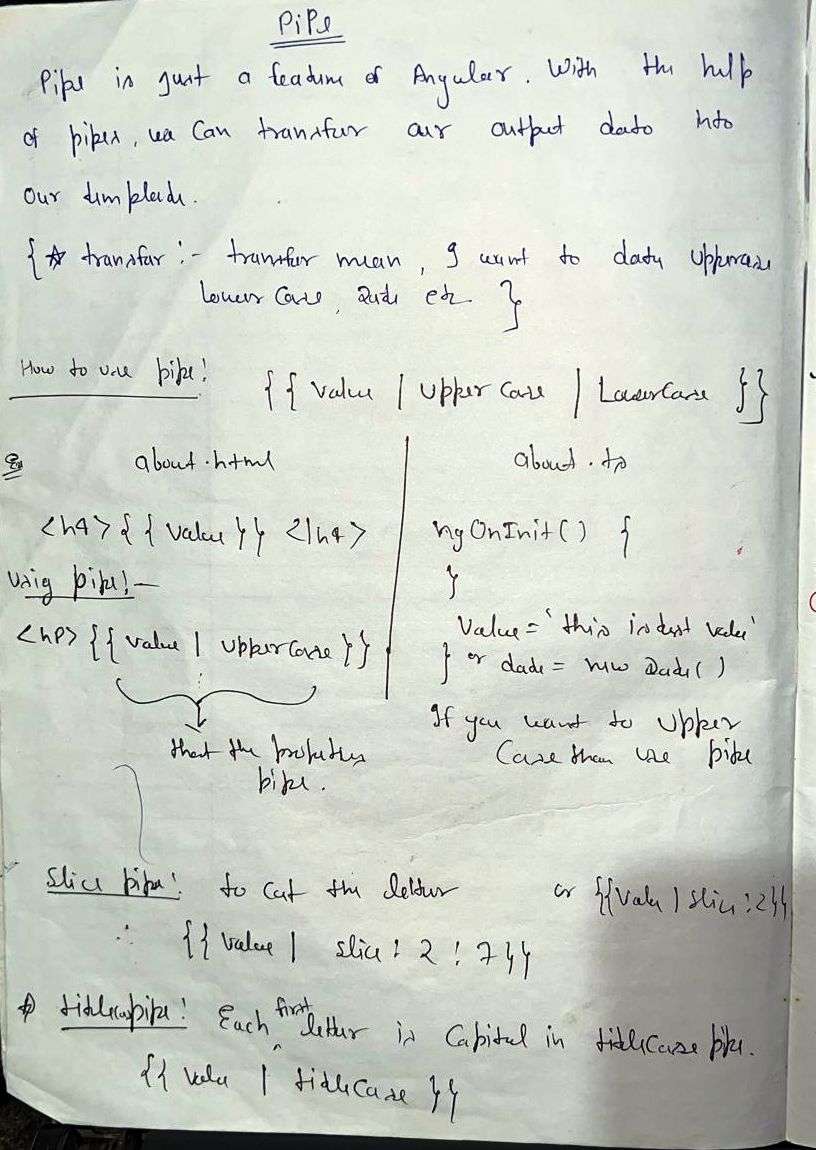 PiPe
Pipe is just a feature of Angular. With the help
of pipes, we can transfer our output data into
our template.
{ ☆ transfar :- transfer mean, I want to data Uppercase
Lower Case, Date etc. }
How to use pipe!
{{ Value | Upper Case | LowerCase }}
Ex
about.html
<h4>{{ Value }} </h4>
Usig pipe!—
<hp>{{ Value | UpperCase }}
that the properties
pipe.
about.ts
ngOnInit() {
}
Value='this is test value'
} or date = new Date()
If you want to Upper
Case than use pipe
Slice pipe! to cut the letter or {{Value | slice:2}}
∴ {{ Value | slice : 2 : 7}}
titlecapipe! Each first letter is Capital in titleCase pipe.
{{ value | titleCase }}